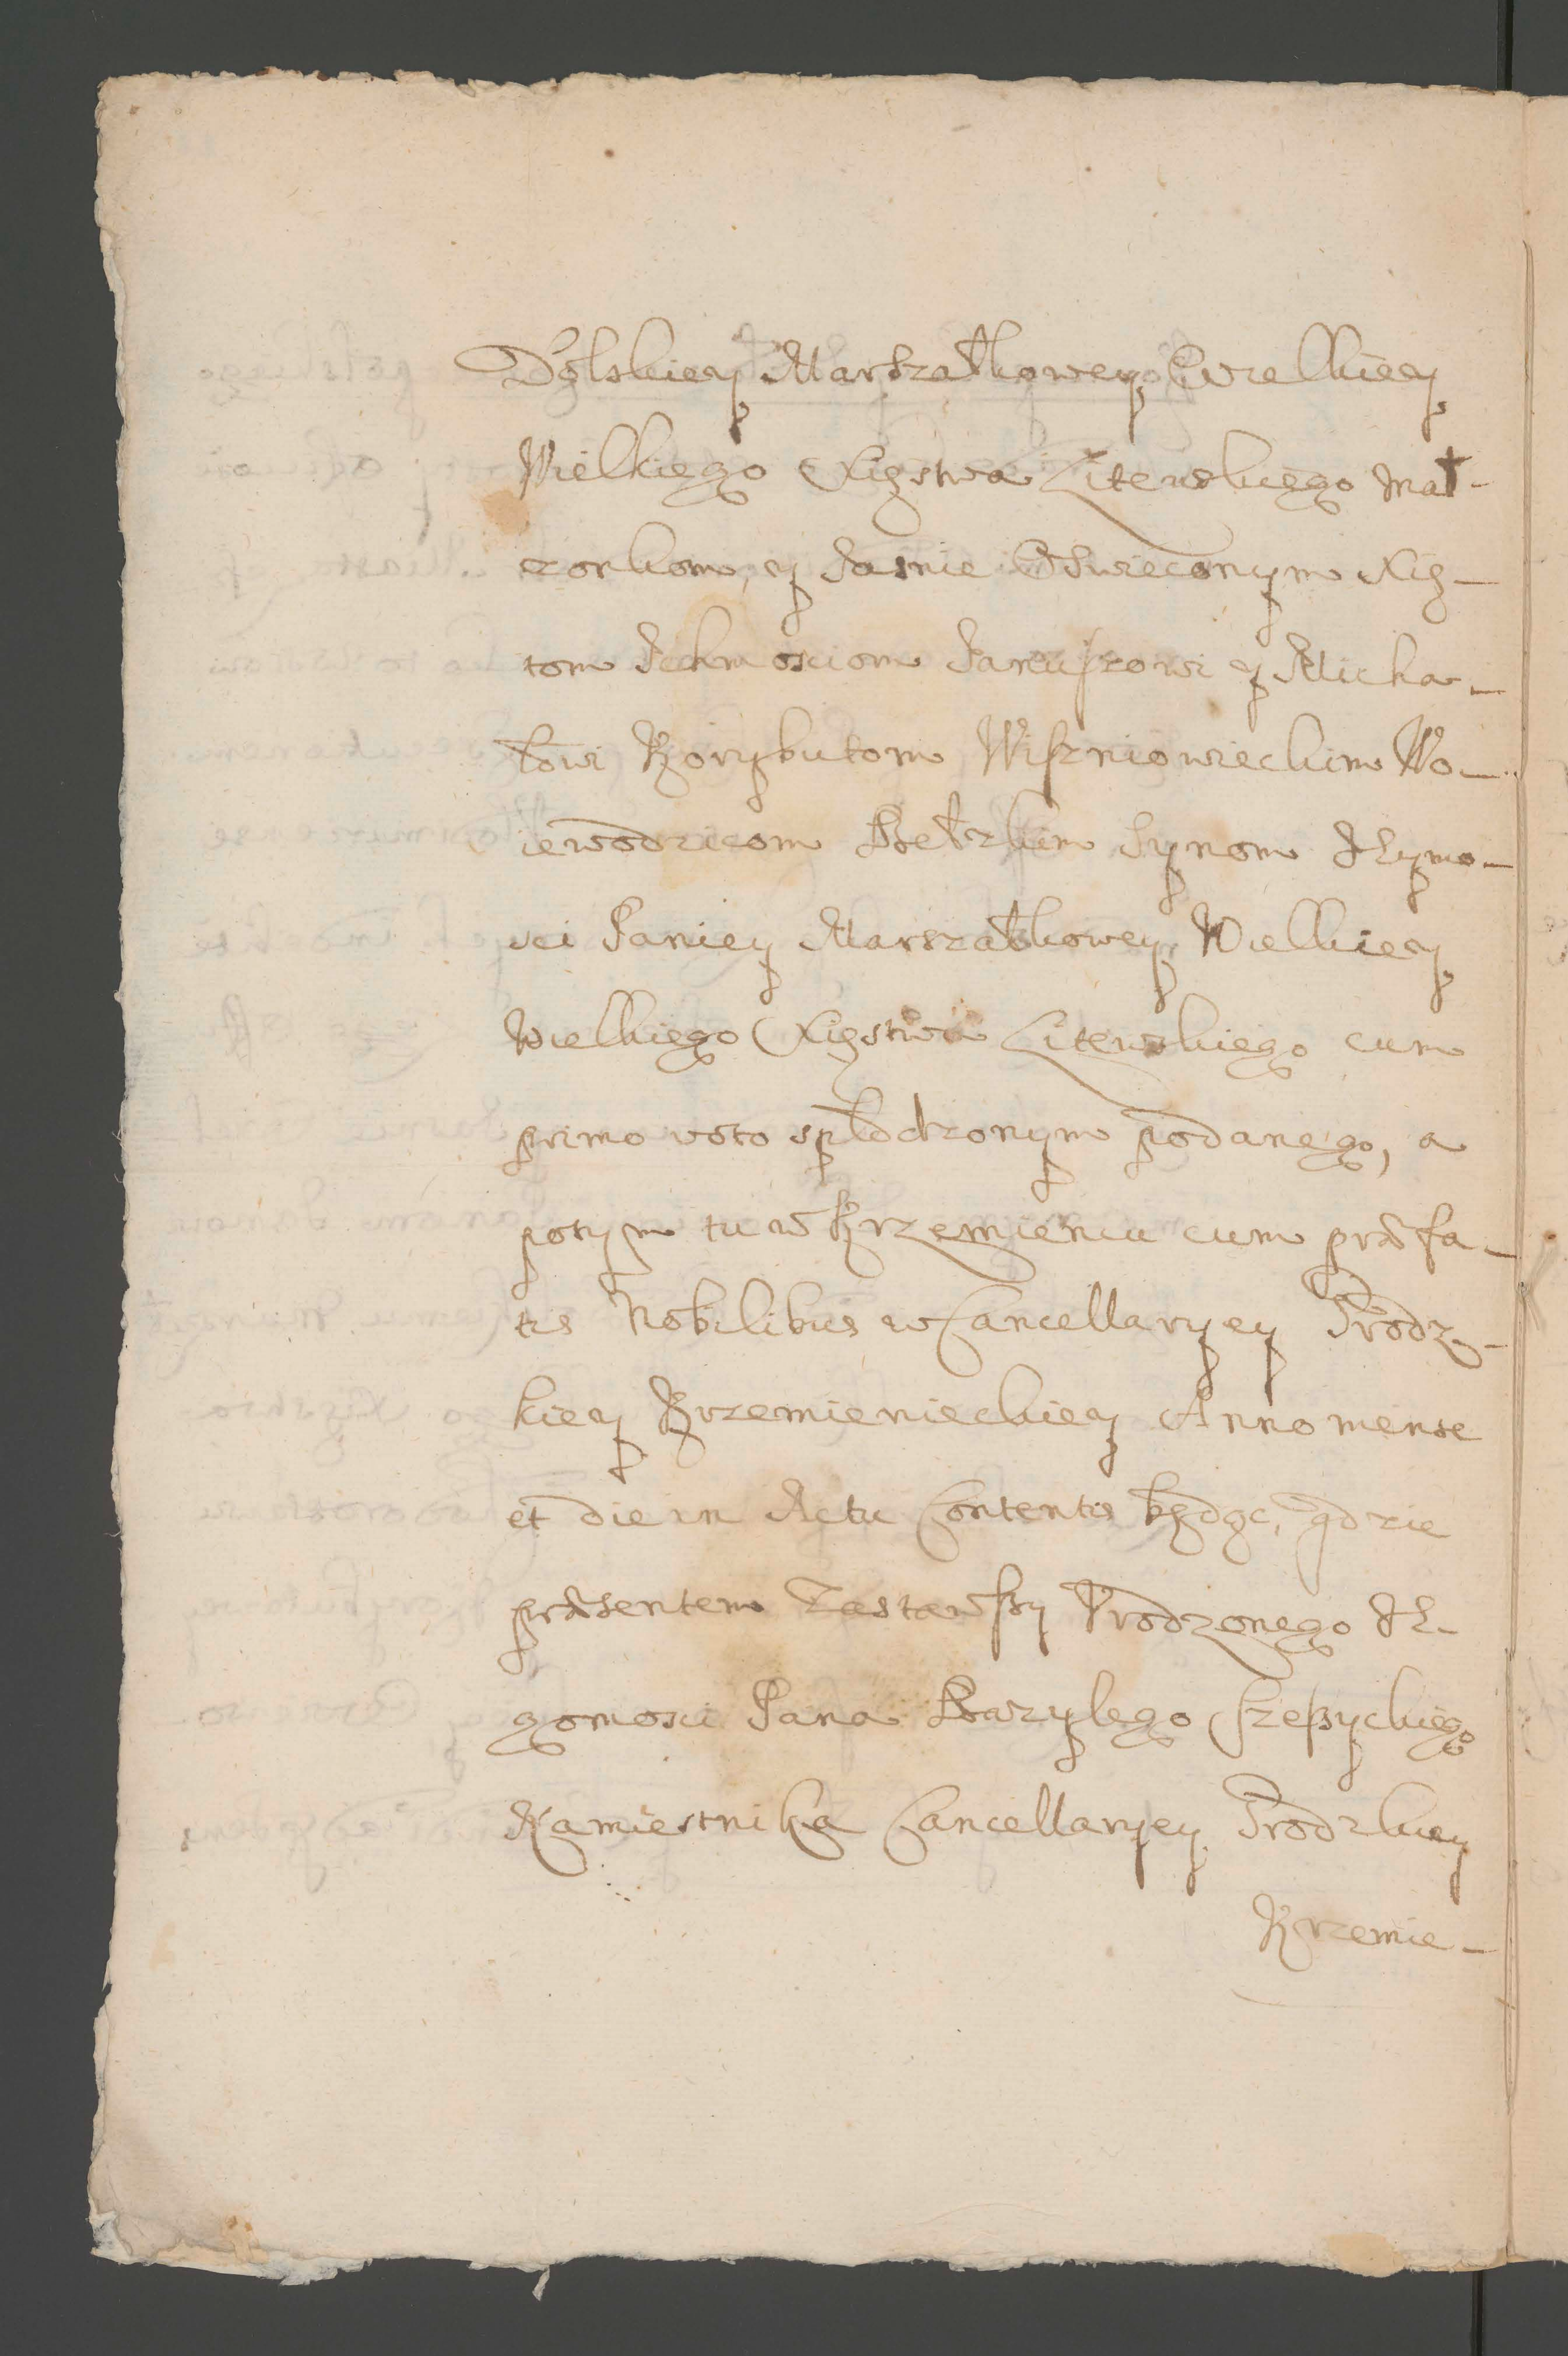 Dolskiey Marszałkowey Wielkiey
Wielkiego Xięstwa Litewskiego Mał-
zonkom, y Jasnie Oswieconym Xią-
tom Ichmosciom Januszowi y Micha-
łowi Korybutom Wiszniowieckim Wo-
iewodzicom Bełzkim Synom Jeymo-
sci Paniey Marszałkowey Wielkiey
Wielkiego Xięstwa Litewskiego cum
primo voto spłodzonym podanego, a
potym tu w Krzemiencu cum præfa-
tis Nobilibus w Cancellaryey Grodz-
kiey Krzemienieckiey Anno mense
et die in Actu Contentis będąc, gdzie
præsentem zastawszy Urodzonego Je-
gomosci Pana Bazylego
Namiestnika Cancellaryey Grodzkiey
Krzemie-